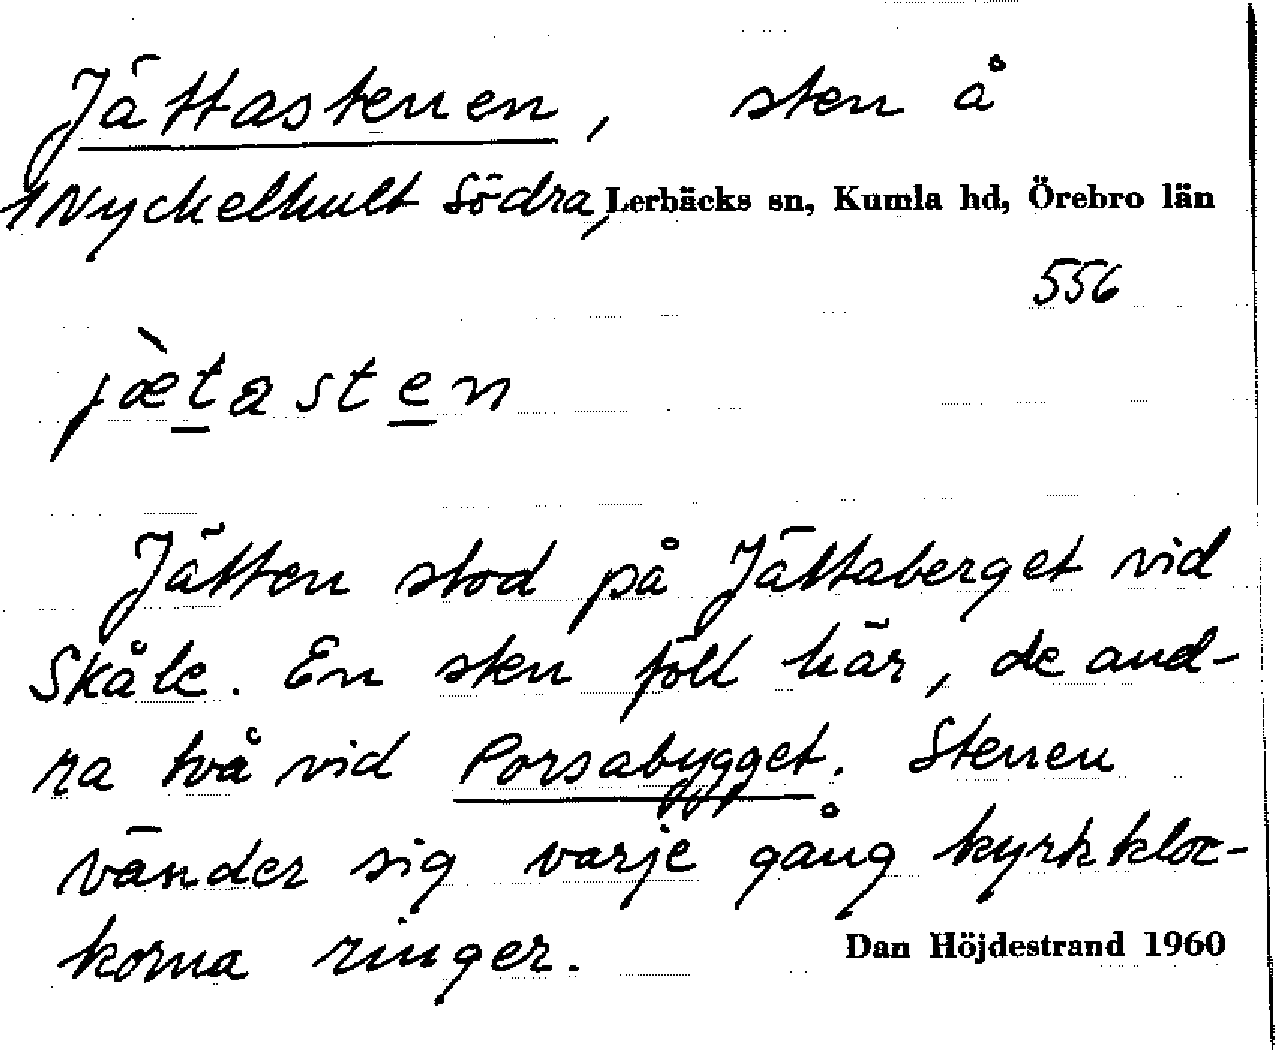 Jättastenen, sten å
Nyckelhult Södra, Lerbäcks sn, Kumla hd, Örebro län
556
jæ̀tasten
Jätten stod på Jättaberget vid
Skåle. En sten föll här, de and-
ra två vid Porsabygget. Stenen
vänder sig varje gång kyrkkloc-
korna ringer.
Dan Höjdestrand 1960